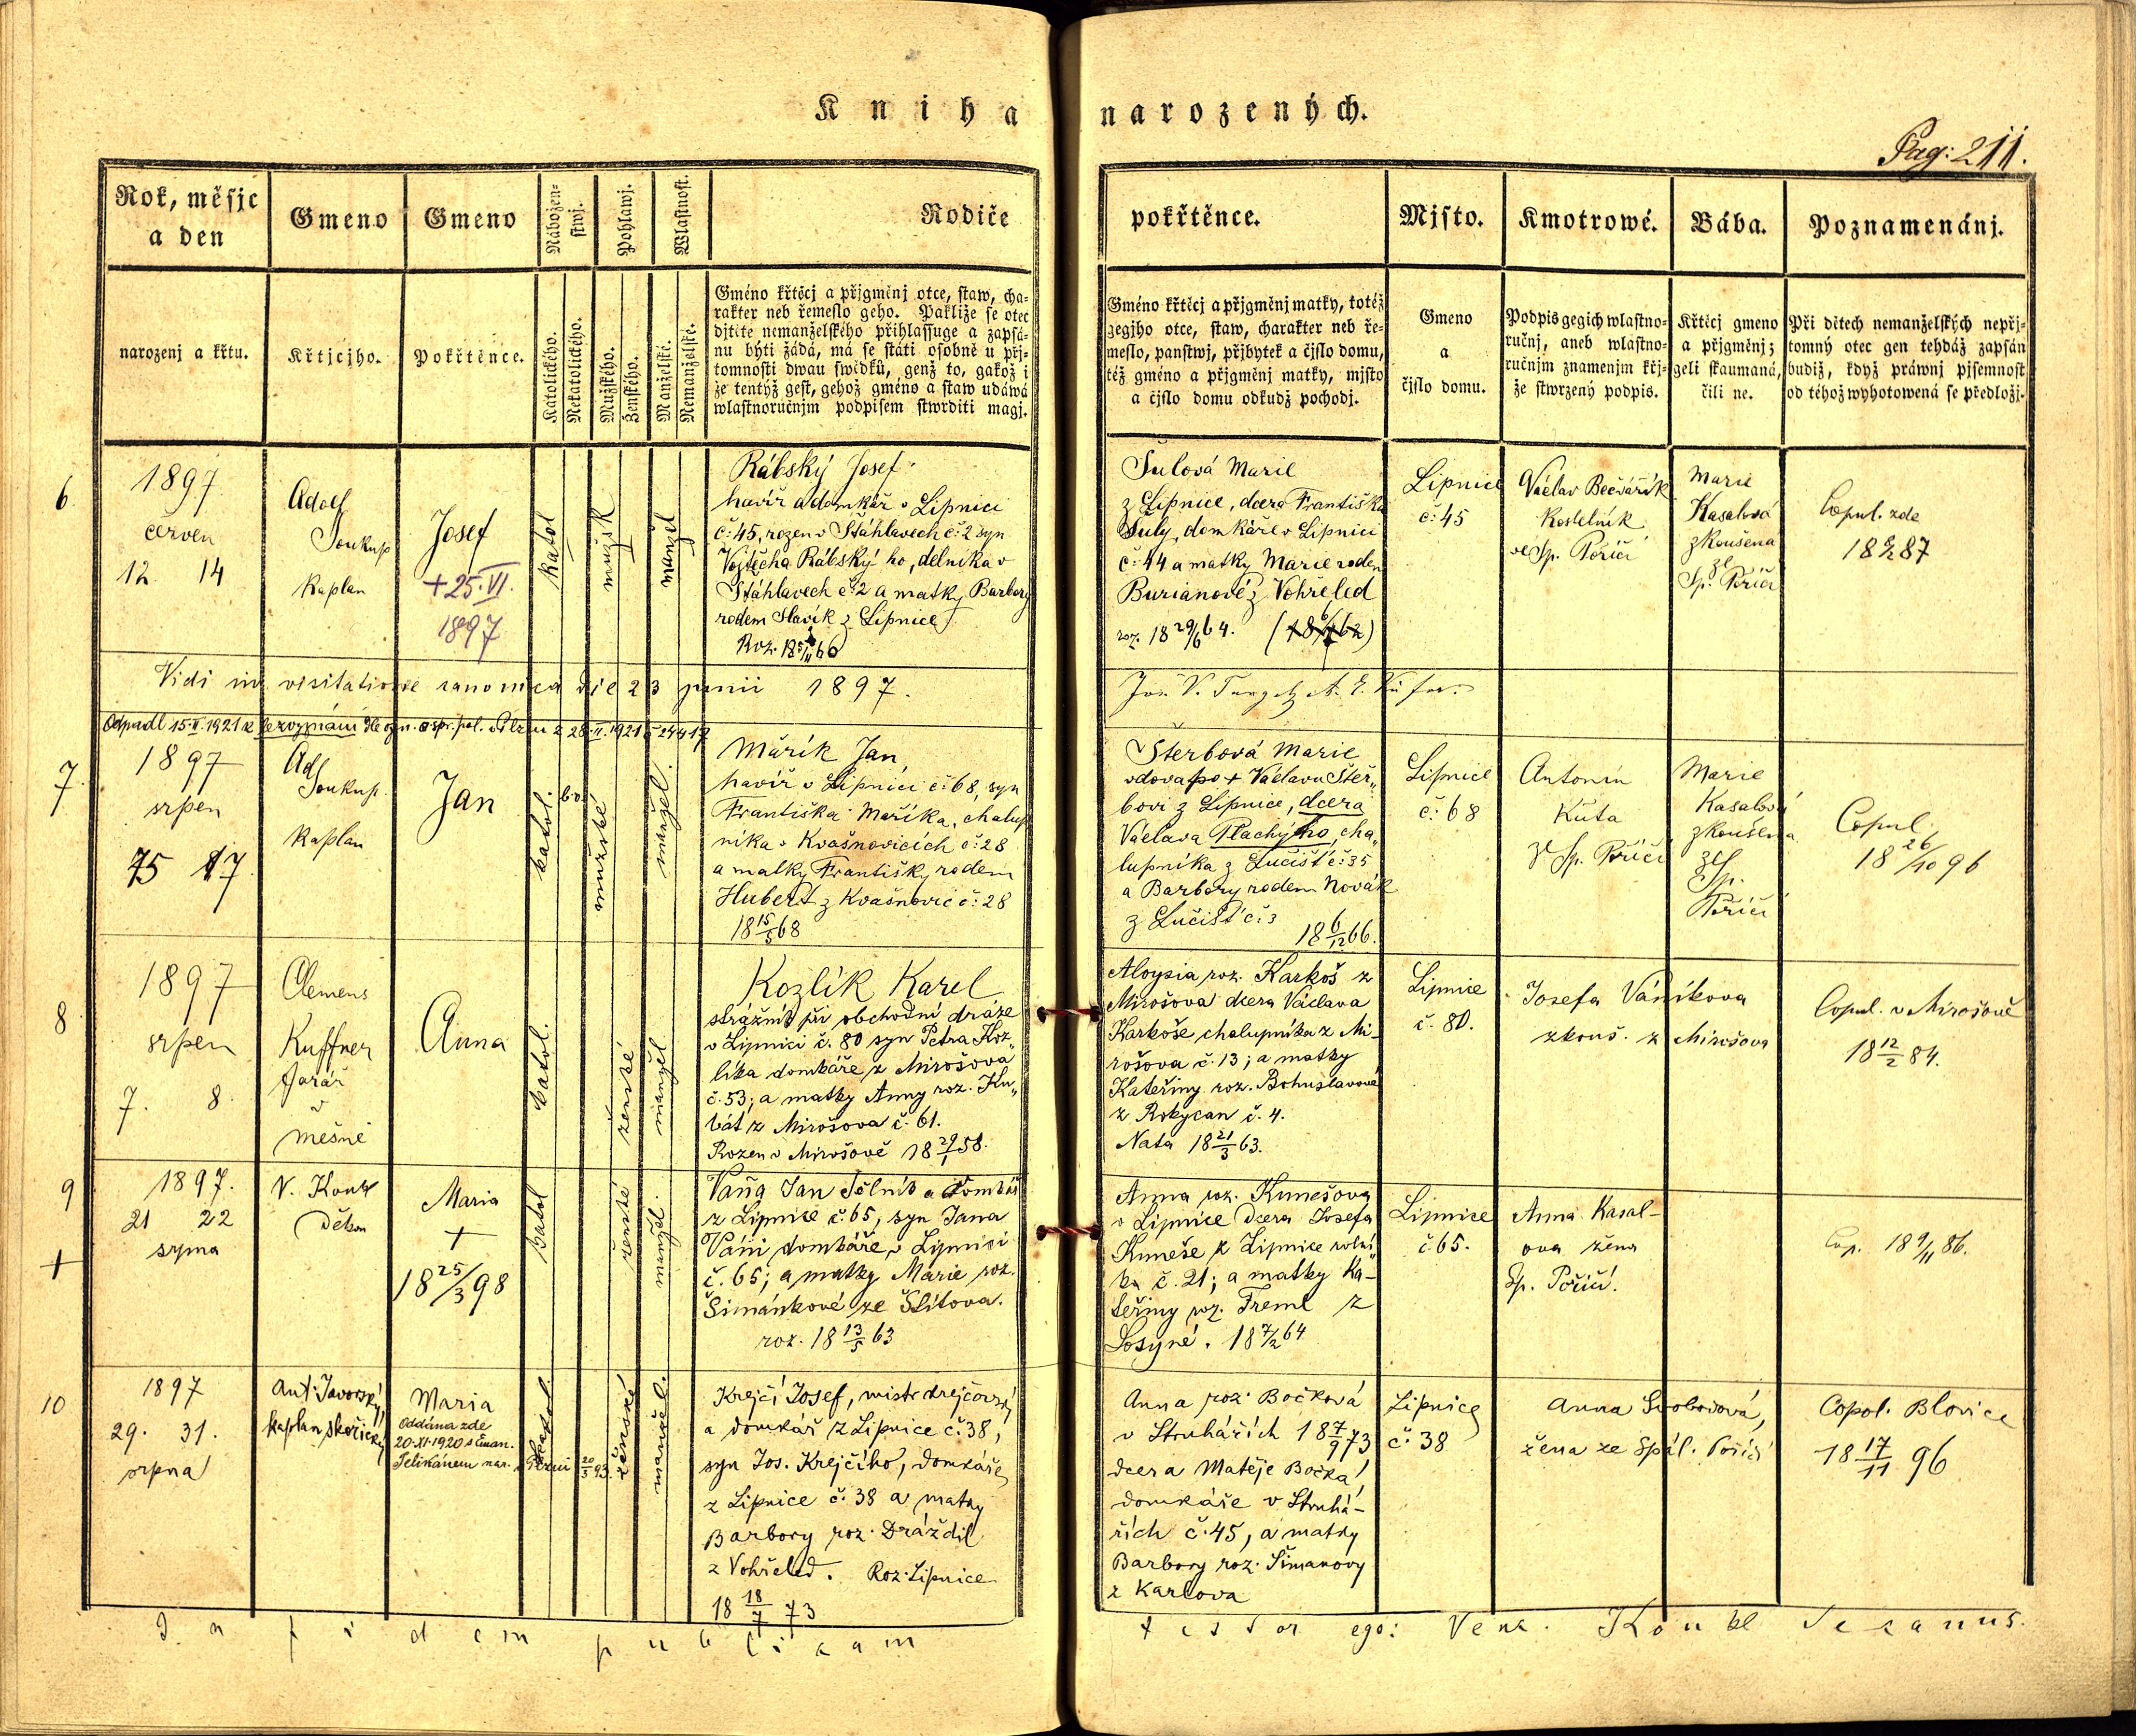 Kniha narozených.
Pag: 211.
Rok, měsjc a den
Gmeno
Gmeno
Nábožen-stwj.
Pohlawj.
Wlastnost.
Rodiče
pokřtěnce.
Mjsto.
Kmotrowé.
Bába.
Poznamenánj.
narozenj a křtu.
Křtjcjho.
Pokřtěnce.
Katolického.
Nekatolického.
Mužského.
Ženského.
Manželské.
Nemanželské.
Gméno křtěcj a přjgmenj otce, staw, cha-
rakter neb řemeslo geho. Pakliže se otec
djtěte nemanželského přihlassuge a zapsá-
nu býti žádá, má se státi osobně u přj-
tomnosti dwau swědků, genž to, gakož i
že tentýž gest, gehož gméno a staw udáwá
wlastnoručnjm podpisem stwrditi magj.
Gméno křtěcj a přjgmenj matky, totéž
gegjho otce, staw, charakter neb ře-
meslo, panstwj, přjbytek a čjslo domu,
též gméno a přjgmenj matky, mjsto
a čjslo domu odkudž pocházj.
Gmeno
a
čjslo domu.
Podpis gegich wlastno-
ručnj, aneb wlastno-
ručnjm znamenjm křj-
že stwrzený podpis.
Křtěcj gmeno
a přjgmenj;
geli skaumaná,
čili ne.
Při dětech nemanželských nepřj-
tomný otec gen tehdáž zapsán
budiž, když práwnj pjsemnost
od téhož wyhotowená se předložj.
6
1897
červen
12 14
Adolf
Soukup
Kaplan
Josef
+25.VI.
1897
katol
mužsk
manžel
Rábský Josef
havíř a domkář v Lipnici
č: 45, rozen v Šťáhlavech č: 2 syn
Vojtěcha Rábský ho, delníka v
Šťáhlavech č: 2 a matky Barbory
rodem Slavík z Lipnice
Roz. 18 66
Šulová Marie
z Lipnice, dcera Františka
Šuly, domkáře v Lipnici
č: 44 a matky Marie rodem
Burianové z Vohřeled
roz. 18 29/6 64.
Lipnice
č: 45
Václav Bečvářík
Kostelník
ve Sp. Poříčí
Marie
Kasalová
zkoušena
ze
Sp. Poříčí
Copul. zde
18 87
Vidi in visitatione canonica die 23 junii 1897.
Odpadl 15.II.1921 k bezvyznání dle ozn. o. spr. pol. v Plzni z 28.II.1921 č 24417
7
1897
srpen
15 17
Ad.
Soukup
Kaplan
Jan
katol.
b.v.
mužské
manžel.
Mařík Jan,
havíř v Lipnici č: 68, syn
Františka Maříka, chalup
níka v Kvašnovicích č: 28
a matky Františky rodem
Hubert z Kvašnovic č: 28
18 15/5 68
Šterbová Marie
vdova po + Václavu Štěr„
bovi z Lipnice, dcera
Václava Plachýho, cha„
lupníka z Lučišť č: 35
a Barbory rodem Novák
z Lučišť č: 3
18 6/12 66.
Lipnice
č: 68
Antonín
Kůta
ze Sp. Poříčí
Marie
Kasalová
zkoušena
ze
Sp.
Poříčí
Copul
18 26/10 96
8
1897
srpen
7. 8.
Clemens
Kuffner
farář
v
Mešně
Anna
katol.
ženské
manžel
Kozlík Karel
strážník při obchodní dráze
v Lipnici č. 80 syn Petra Koz„
líka domkáře z Mirošova
č. 53; a matky Anny roz. Ku„
bát z Mirošova č. 61.
Rozen v Mirošově 18 29/1 58.
Aloysia roz. Karkoš z
Mirošova dcera Václava
Karkoše chalupníka z Mi-
rošova č. 13; a matky
Kateřiny roz. Bohuslavové
z Rokycan č. 4.
Nata 18 21/3 63.
Lipnice
č. 80.
Josefa Váníkova
zkouš. z Mirošova
Copul. v Mirošově
18 12/2 84.
9
+
1897.
21 22
srpna
V. Koukl
Děkan
Maria
+
18 25/3 98
katol
ženské
manžel.
Váňa Jan dělník a domkář
z Lipnice č. 65, syn Jana
Váni domkáře v Lipnici
č. 65; a matky Marie roz.
Šimánkové ze Štítova.
roz. 18 13/5 63
Anna roz. Kunešova
v Lipnice dcera Josefa
Kuneše z Lipnice rolní
ka č. 21; a matky Ka-
teřiny roz. Treml z
Losyné. 18 7/2 64
Lipnice
č 65.
Anna Kasal-
ova žena
Sp. Poříčí.
Cop. 18 9/11 86.
10
1897
29. 31.
srpna
Ant. Javorský,
kaplan skořický
Maria
Oddána zde
20.XI.1920 s Eman.
Jelikánem nar. 20/5 93.
katol.
ženské
manžel.
Krejčí Josef, mistr krejčovský
a domkář z Lipnice č. 38,
syn Jos. Krejčího, domkáře
z Lipnice č. 38 a matky
Barbory roz. Dráždil
z Vohřeled. Roz. Lipnice
18 18/7 73
Anna roz. Bočková
v Struhářích 18 7/9 73
dcera Matěje Bočka
domkáře v Struhá-
řích č. 45, a matky
Barbory roz. Šimanovy
z Karlova
Lipnice
č. 38
Anna Svobodová,
žena ze Spál. Poříčí
Copol. Blovice
18 17/11 96
In fidem publicam testor ego: Venc. Koukl Decanus.